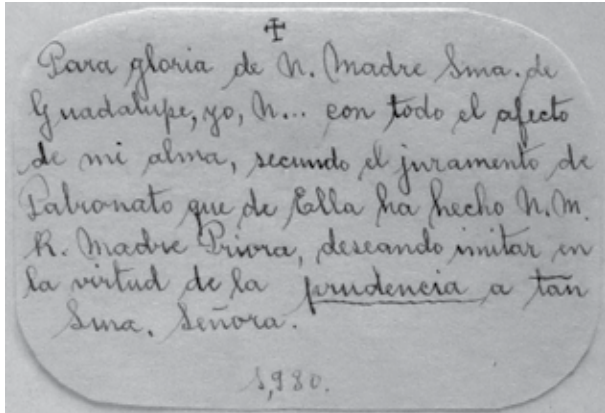 ✠
Para gloria de N. Madre Sma. de
Guadalupe, yo, N... con todo el afecto
de mi alma, secundo el juramento de
Patronato que de Ella ha hecho N. M.
R. Madre Priora, deseando imitar en
la virtud de la prudencia a tan
Sma. Señora.
1,980.